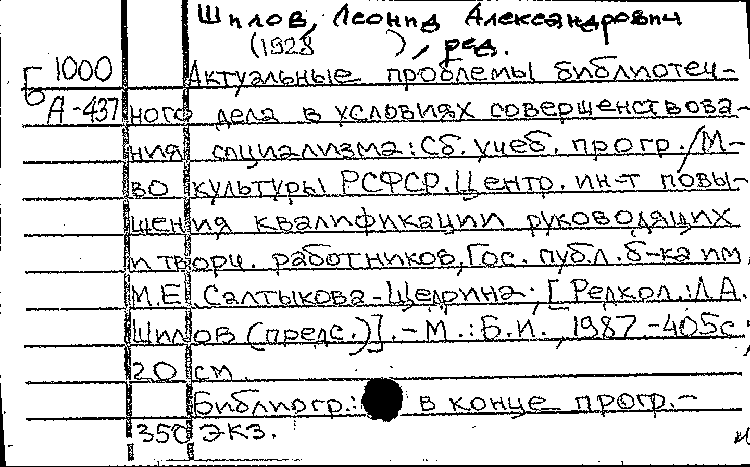 Шилов, Леонид Александрович
(1928 ), ред.
Б 1000 Актуальные проблемы библиотеч-
А-437 ного дела в условиях совершенствова-
ния социализма: Сб. учеб. прогр./М-
во культуры РСФСР. Центр. ин-т повы-
шения квалификации руководящих
и творч. работников, Гос. публ. б-ка им.
М.Е. Салтыкова-Щедрина; [Редкол.: Л.А.
Шилов (предс.)].-М.: Б.И., 1987.-405с.;
20 см.
Библиогр.: в конце прогр.-
350 экз.